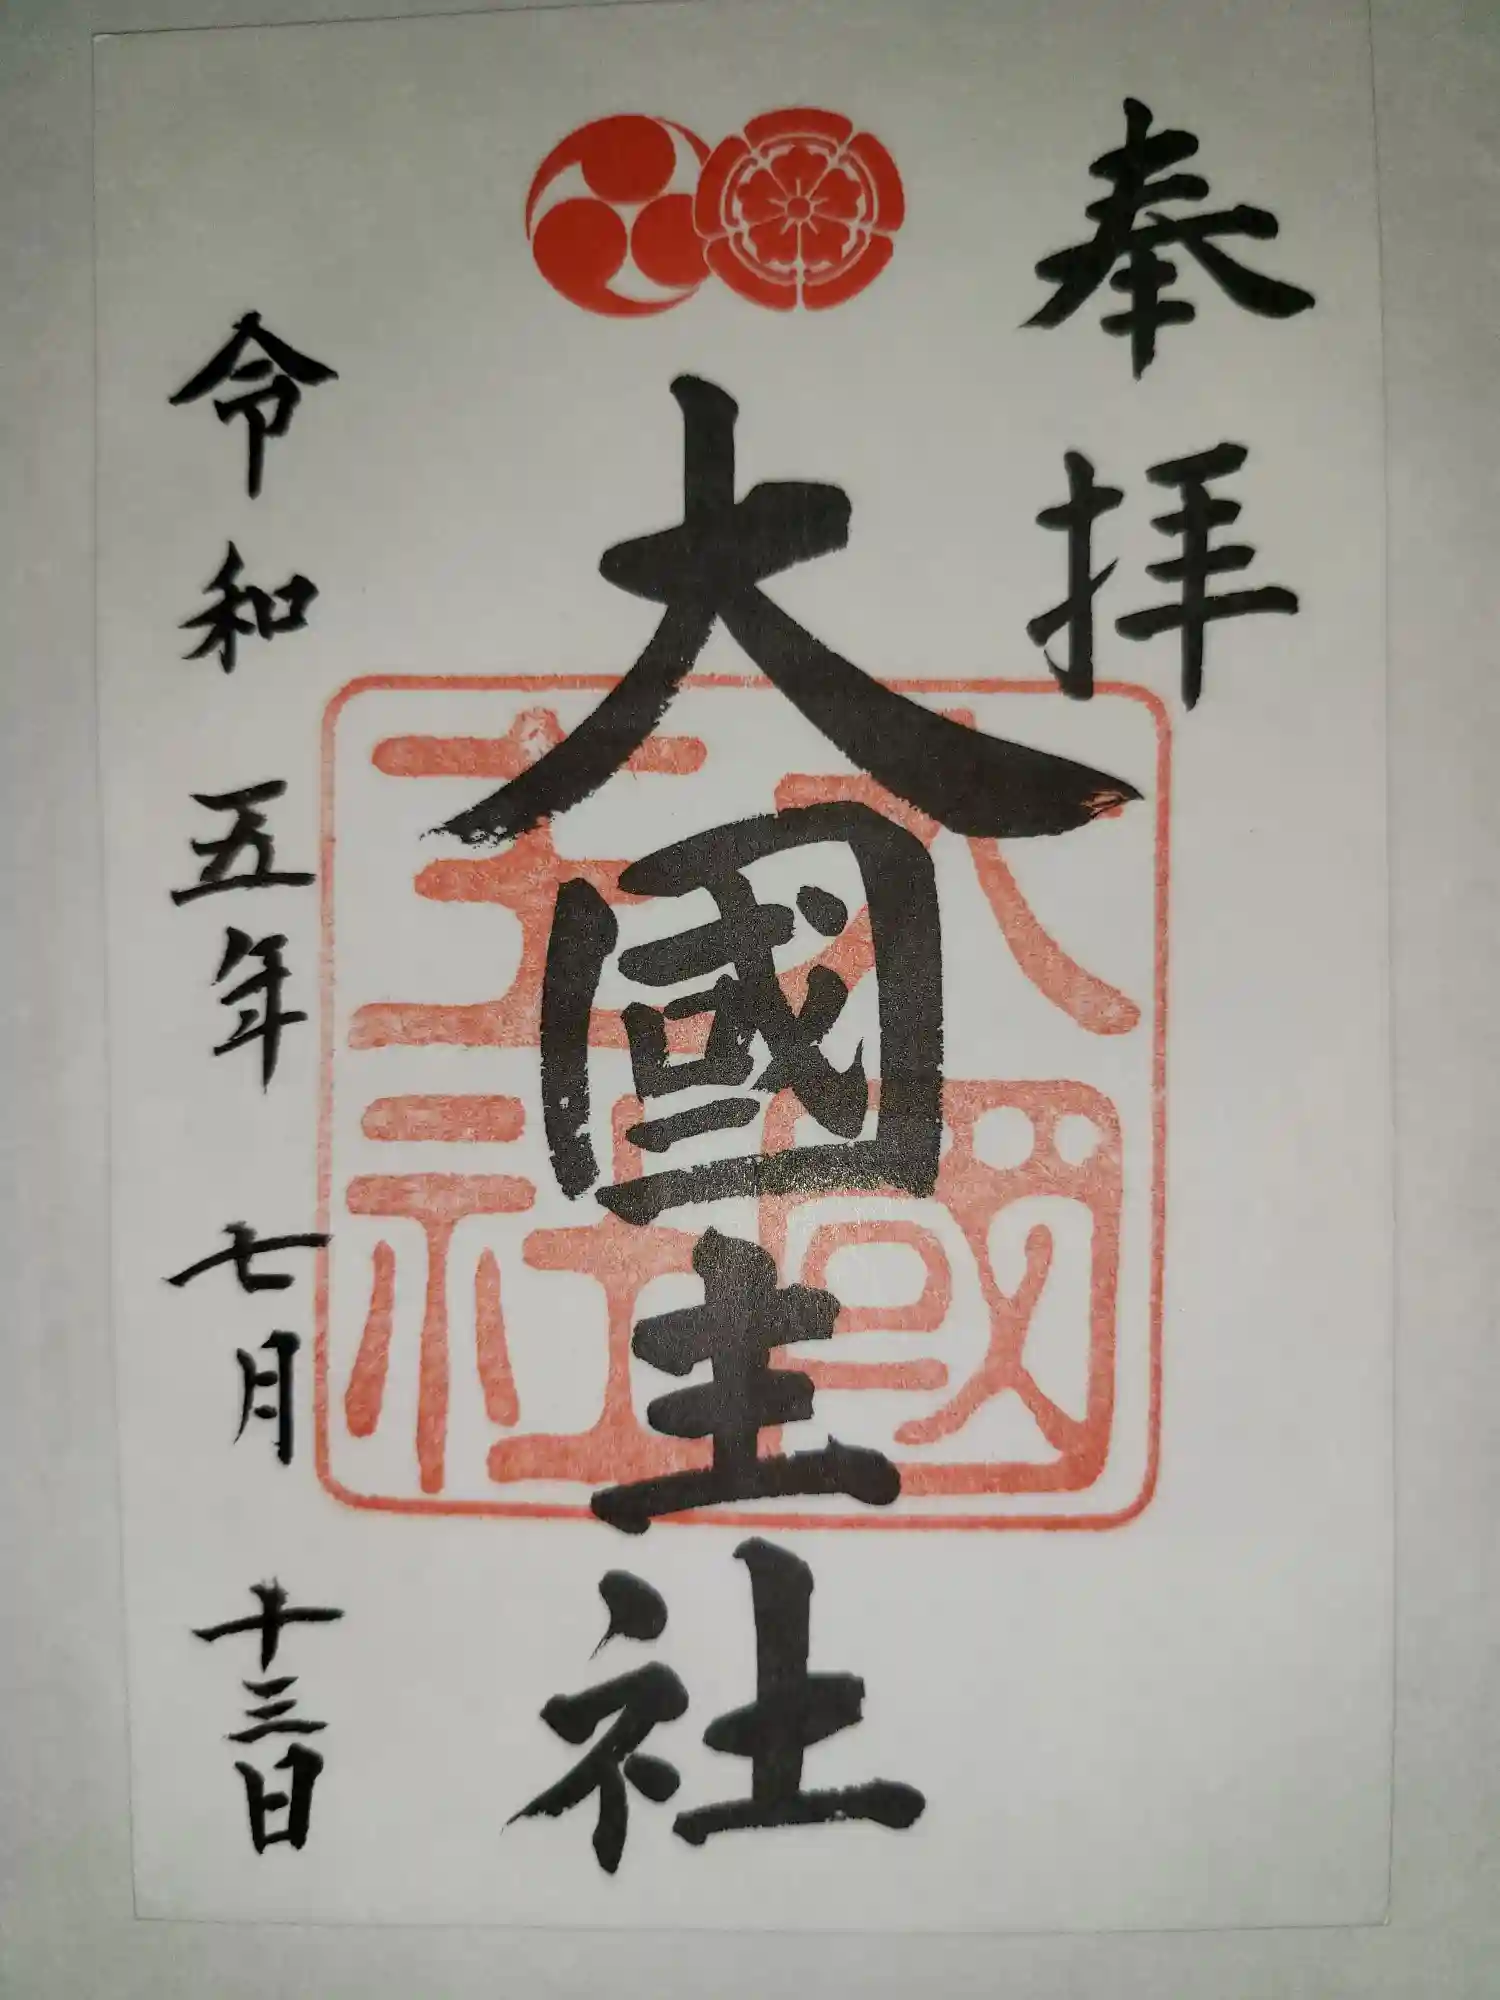 奉拝
大國主社
大國主社
令和五年七月十三日